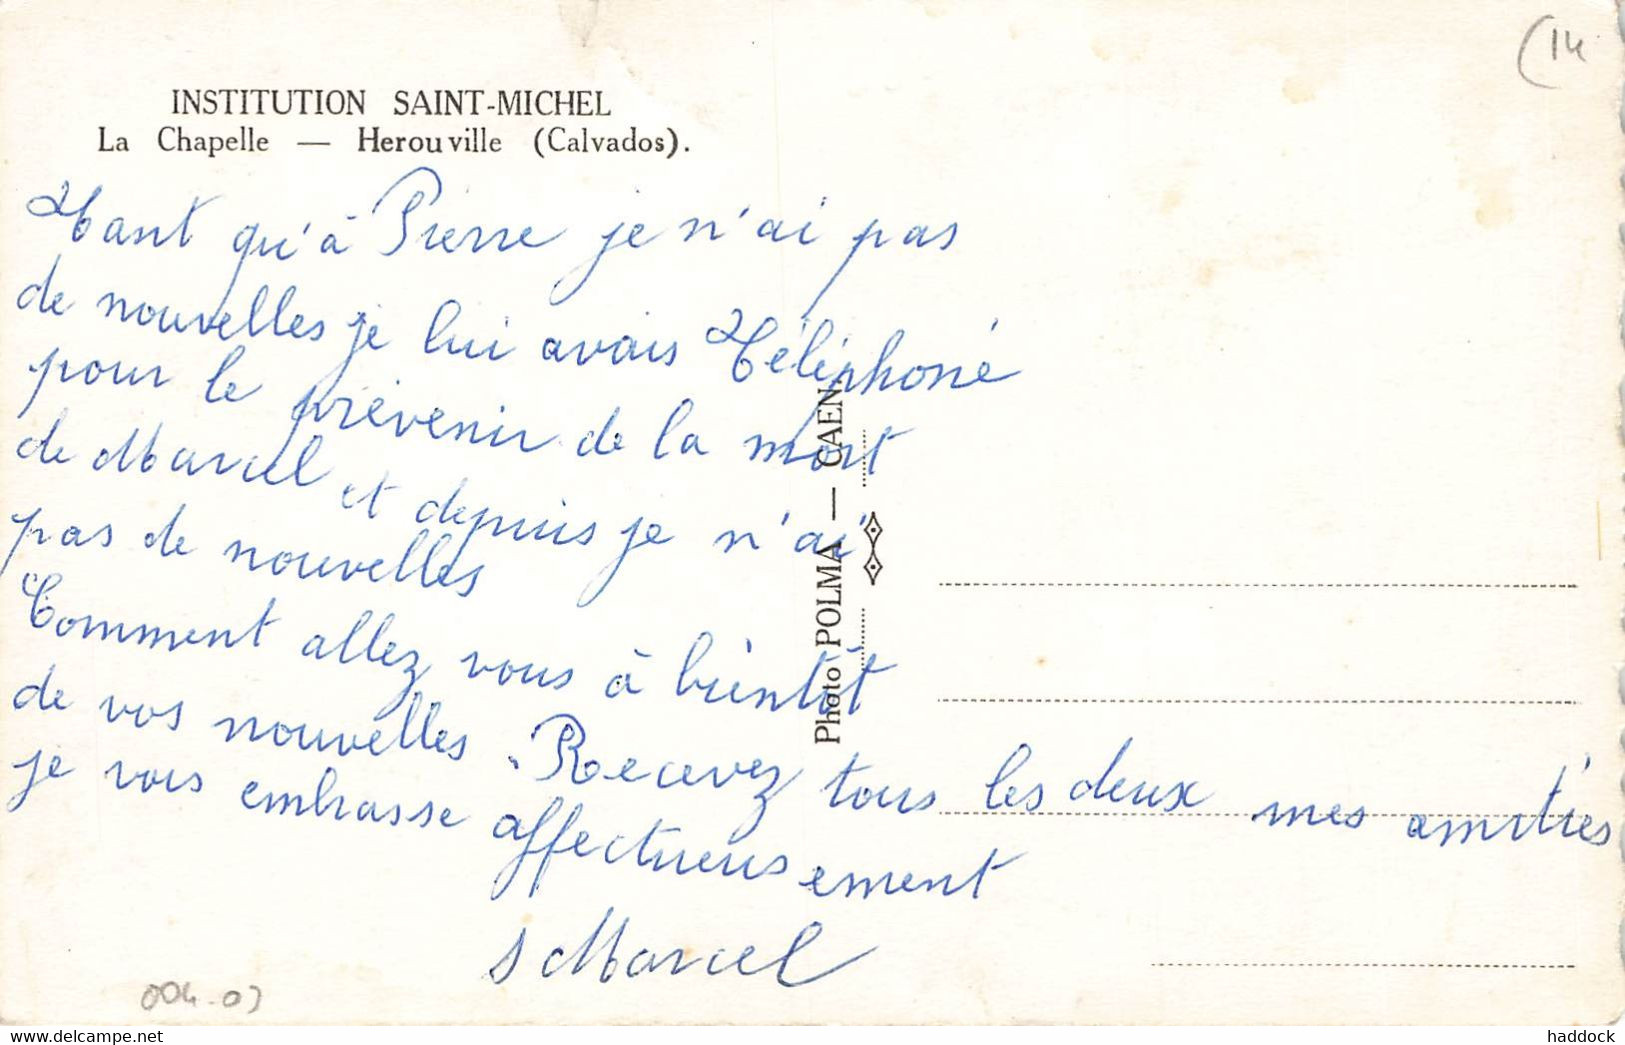 (14
INSTITUTION SAINT-MICHEL
La Chapelle — Herouville (Calvados).
Tant qu'à Pierre je n'ai pas
de nouvelles je lui avais Téléphoné
pour le prévenir de la mort
de Marcel et depuis je n'ai
pas de nouvelles
Comment allez vous à bientôt
de vos nouvelles. Recevez tous les deux mes amitiés
je vous embrasse affectueusement
s Marcel
Photo POLMA — CAEN.
004-03
www.delcampe.net
haddock